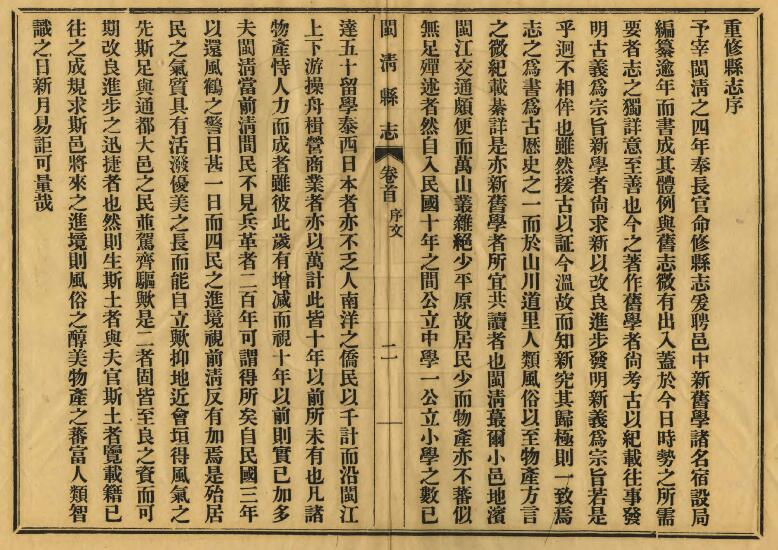 重修縣志序
予宰閩清之四年奉長官命修縣志爰聘邑中新舊學諸名宿設局
編纂逾年而書成其體例與舊志微有出入蓋於今日時勢之所需
要者志之獨詳意至善也今之著作舊學者尙考古以紀載往事發
明古義爲宗旨新學者尙求新以改良進步發明新義爲宗旨若是
乎迥不相侔也雖然援古以証今溫故而知新究其歸極則一致焉
志之爲書爲古歷史之一而於山川道里人類風俗以至物產方言
之微紀載綦詳是亦新舊學者所宜共讀者也閩清蕞爾小邑地濱
閩江交通頗便而萬山叢雜絕少平原故居民少而物產亦不蕃似
無足殫述者然自入民國十年之間公立中學一公立小學之數已
閩清縣志
卷首
序文
二
達五十留學泰西日本者亦不乏人南洋之僑民以千計而沿閩江
上下游操舟楫營商業者亦以萬計此皆十年以前所未有也凡諸
物產恃人力而成者雖彼此歲有增减而視十年以前則實已加多
夫閩清當前清間民不見兵革者二百年可謂得所矣自民國三年
以還風鶴之警日甚一日而四民之進境視前清反有加焉是殆居
民之氣質具有活潑優美之長而能自立歟抑地近會垣得風氣之
先斯足與通都大邑之民並駕齊驅歟是二者固皆至良之資而可
期改良進步之迅捷者也然則生斯土者與夫官斯土者覽載籍已
往之成規求斯邑將來之進境則風俗之醇美物產之蕃富人類智
識之日新月易詎可量哉